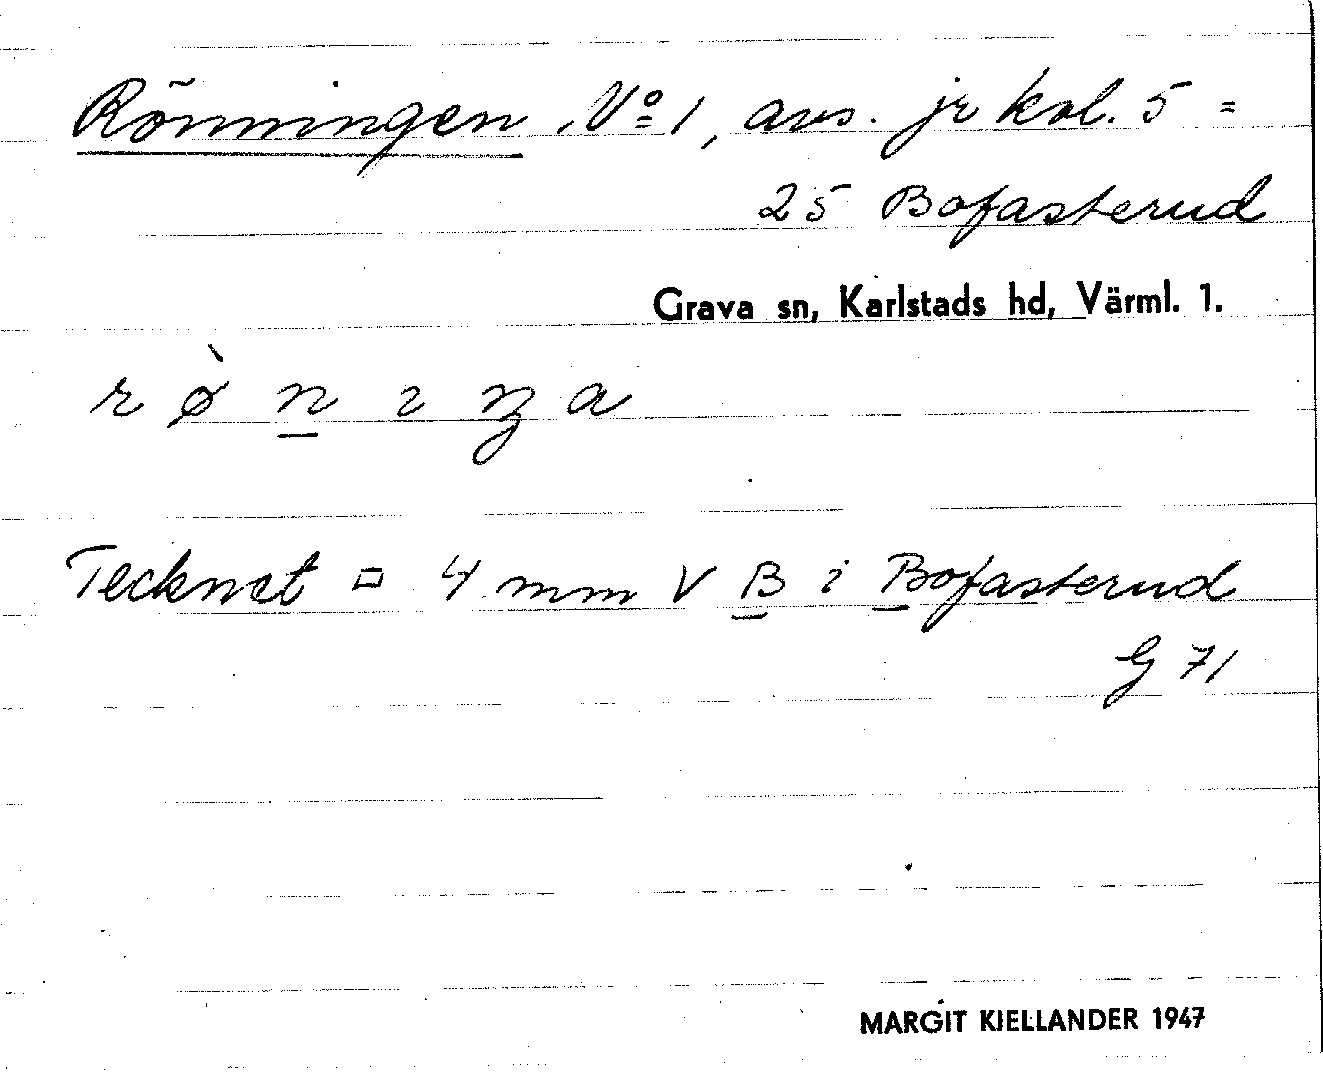 Rönningen, No 1, avs. jr kol. 5 =
25 Bofasterud
Grava sn, Karlstads hd, Värml. 1.
r ø̀ n ɪ ŋ a
Tecknet □ 4 mm V B i Bofasterud
G 71
MARGIT KIELLANDER 1947